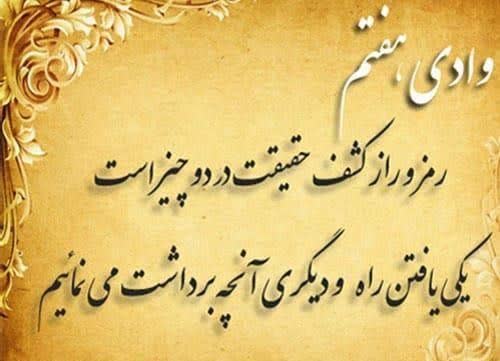 وادی هفتم
رمز و راز کشف حقیقت در دو چیز است
یکی یافتن راه و دیگری آنچه برداشت می نمائیم